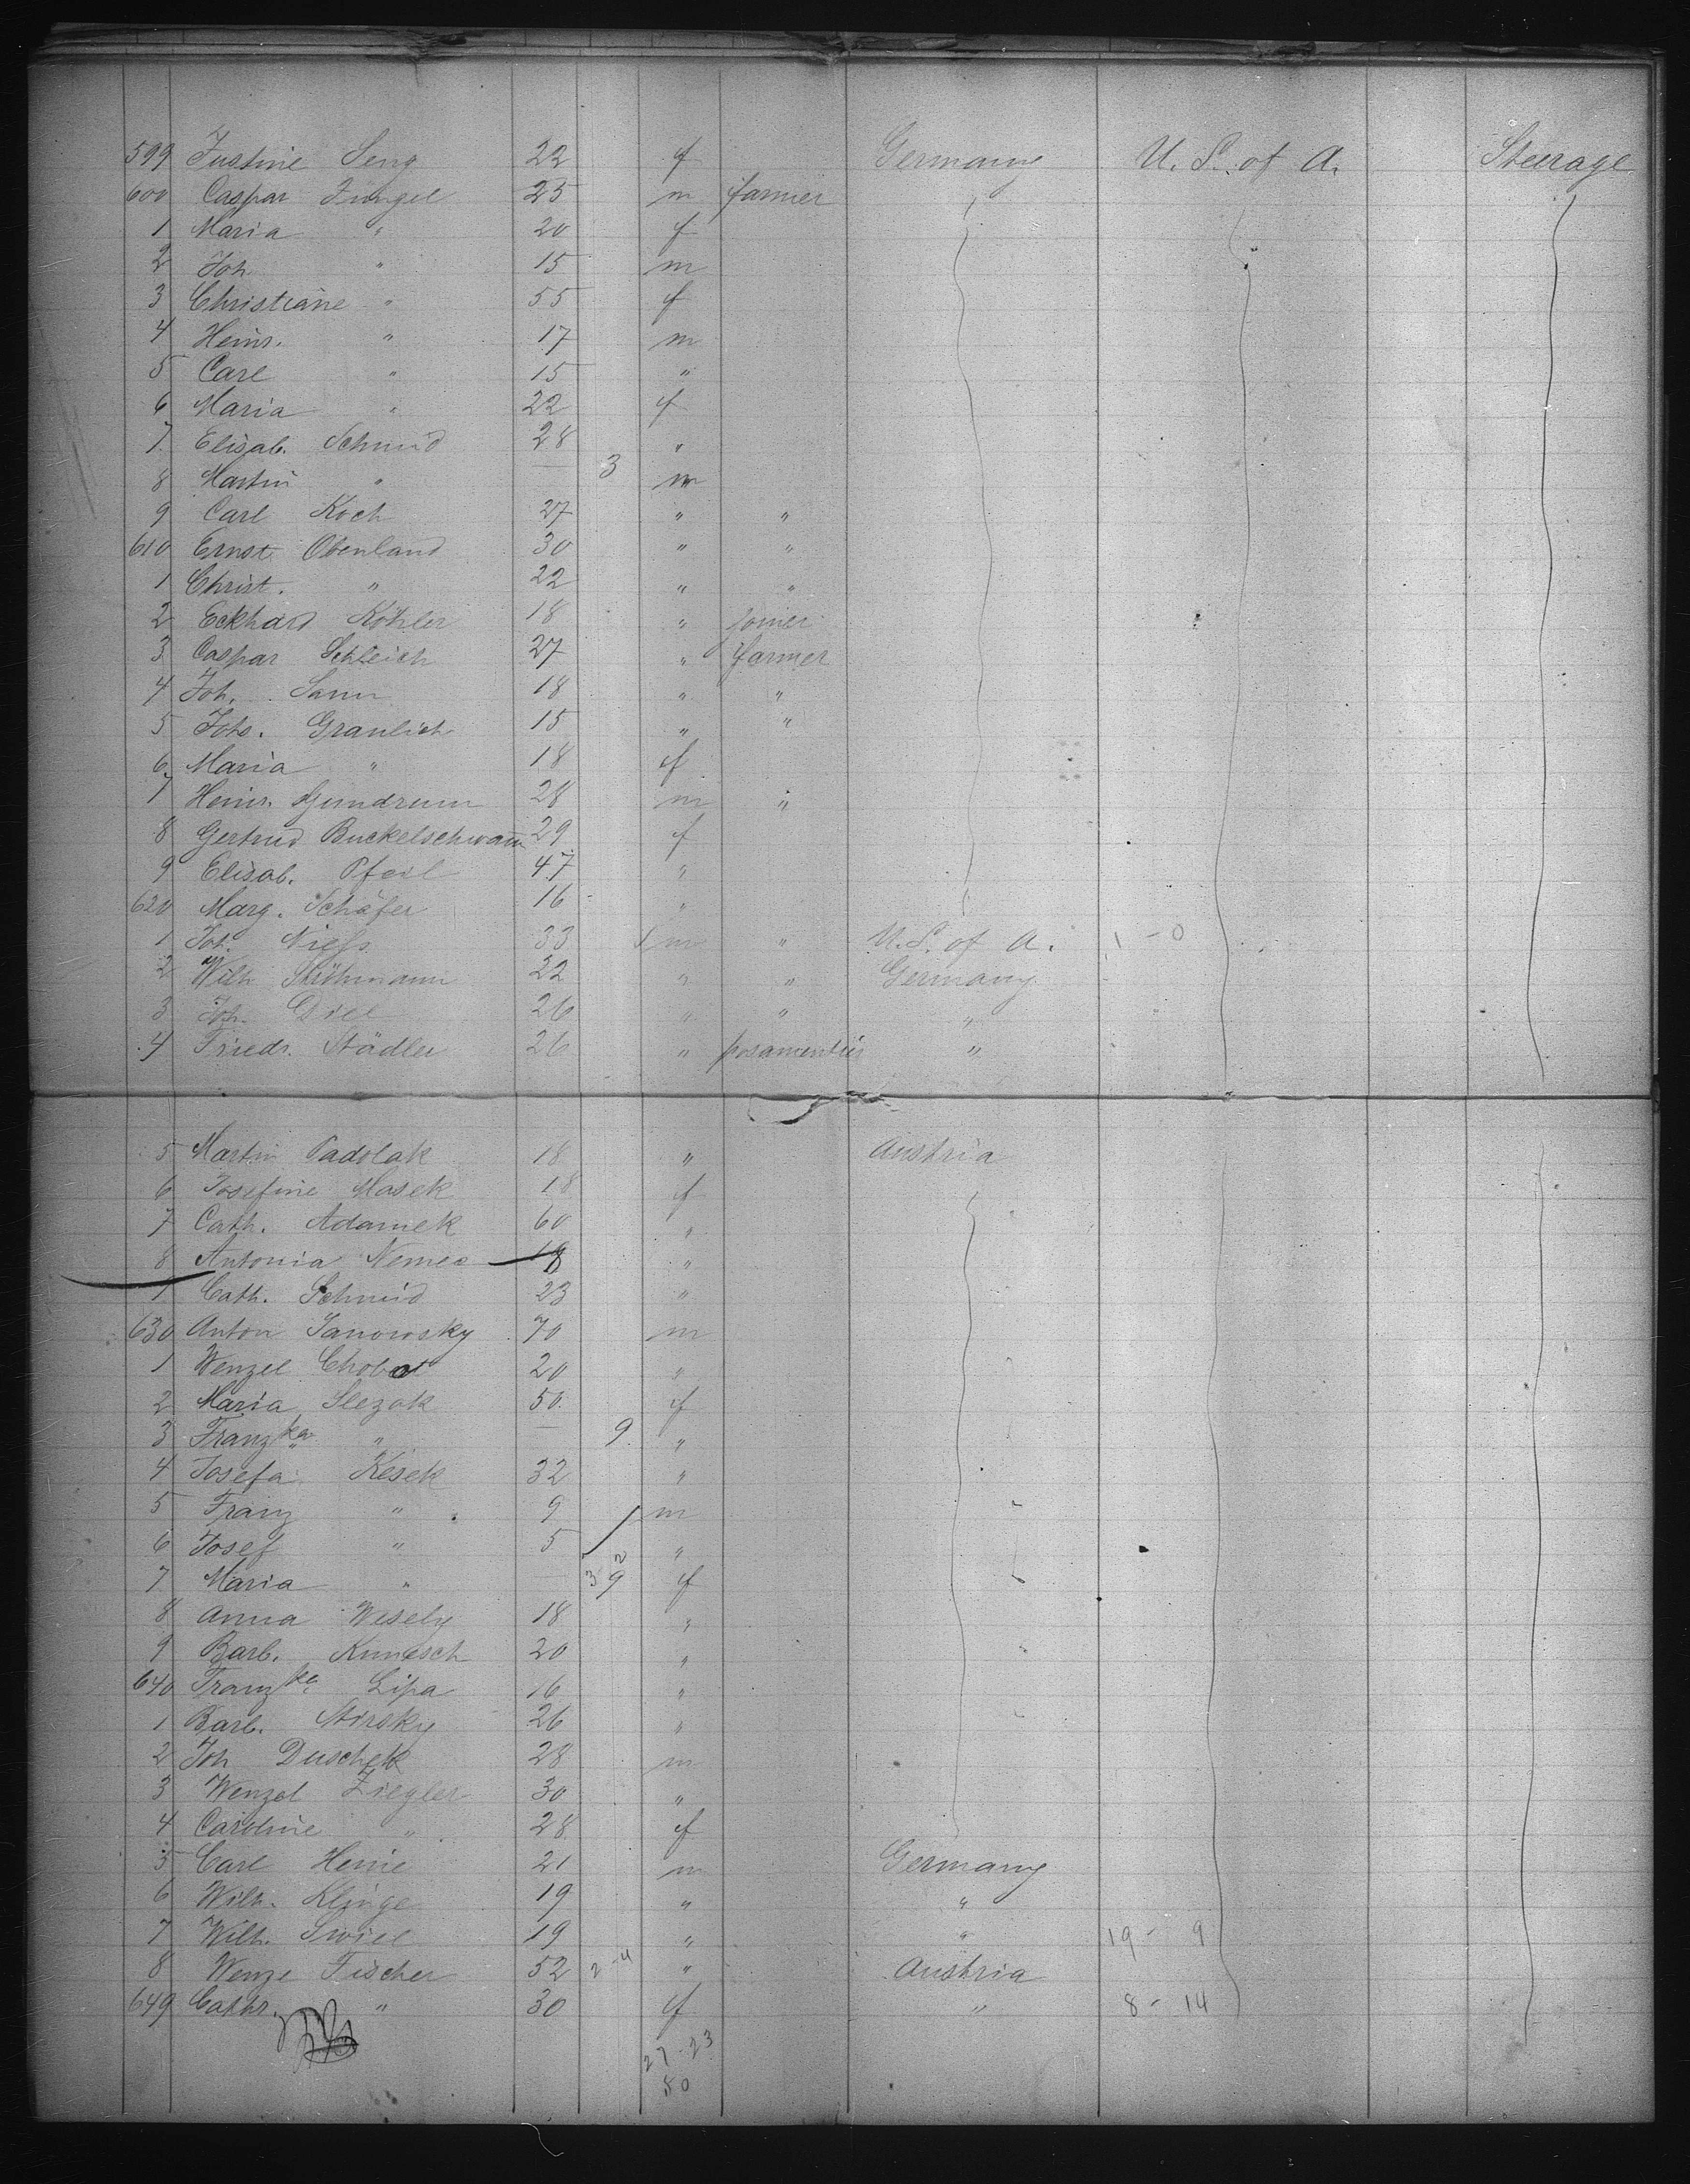 599 Justine Seng 22 f Germany U. S. of A. Steerage
600 Caspar Züngel 25 m farmer
1 Maria " 20 f
2 Joh " 15 m
3 Christiane " 55 f
4 Heinr. " 17 m
5 Carl " 15 "
6 Maria " 22 f
7 Elisab. Schmid 28 "
8 Martin " — 3 m
9 Carl Koch 27 " "
610 Ernst Obenland 30 " "
1 Christ. " 22 " "
2 Eckhard Köhler 18 " joiner
3 Caspar Schleich 27 " farmer
4 Joh. Sann 18 " "
5 Johs. Graulich 15 " "
6 Maria " 18 f
7 Heinr. Gundrum 28 m "
8 Gertrud Buckelschwam 29 f
9 Elisab. Pfeil 47 "
620 Marg. Schäfer 16 "
1 Joh. Niess 33 m " U. S. of A. 1 - 0
2 Wilh. 22 " " Germany
3 Joh. Diel 26 " " "
4 Friedr. Städler 26 " posamentier "
5 Martin Padolak 18 " Austria
6 Josefine Masek 18 f
7 Cath. Adamek 60 "
8 Antonia Nemec 18 "
9 Cath. Schmid 23 "
630 Anton Janowsky 70 m
1 Wenzel Chobot 20 "
2 Maria Slezak 50 f
3 Franzka " — 9 "
4 Josefa Kesek 32 "
5 Franz " 9 m
6 Josef " 5 "
7 Maria " 3 9 f
8 Anna Wesely 18 "
9 Barb. Kunesch 20 "
640 Franzka Lipa 16 "
1 Barb. Stirsky 26 "
2 Joh Duschek 28 m
3 Wenzel Ziegler 30 "
4 Caroline " 28 f
5 Carl Heine 21 m Germany
6 Wilh. Klinge 19 " "
7 Wilh. 19 " " 19 - 9
8 Wenze Fischer 52 2 - 4 " Austria
649 Cathr. " 30 f " 8 - 14
27 - 23
50